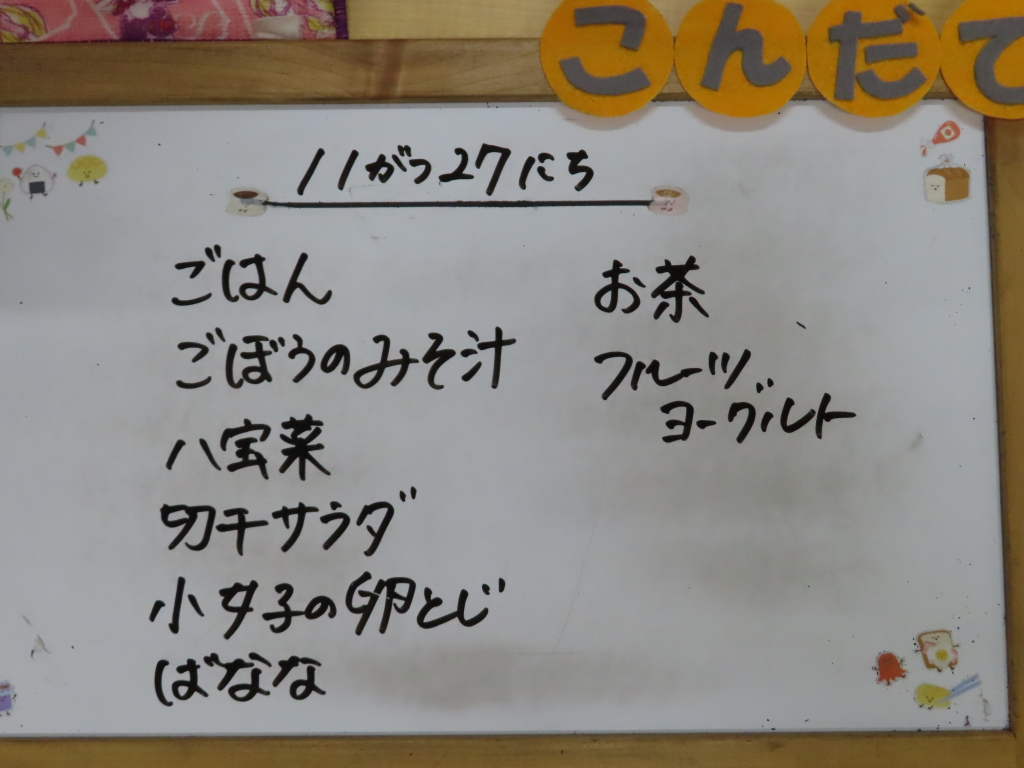 こんだて
11がつ27にち
ごはん
ごぼうのみそ汁
八宝菜
切干サラダ
小女子の卵とじ
ばなな
お茶
フルーツ
ヨーグルト